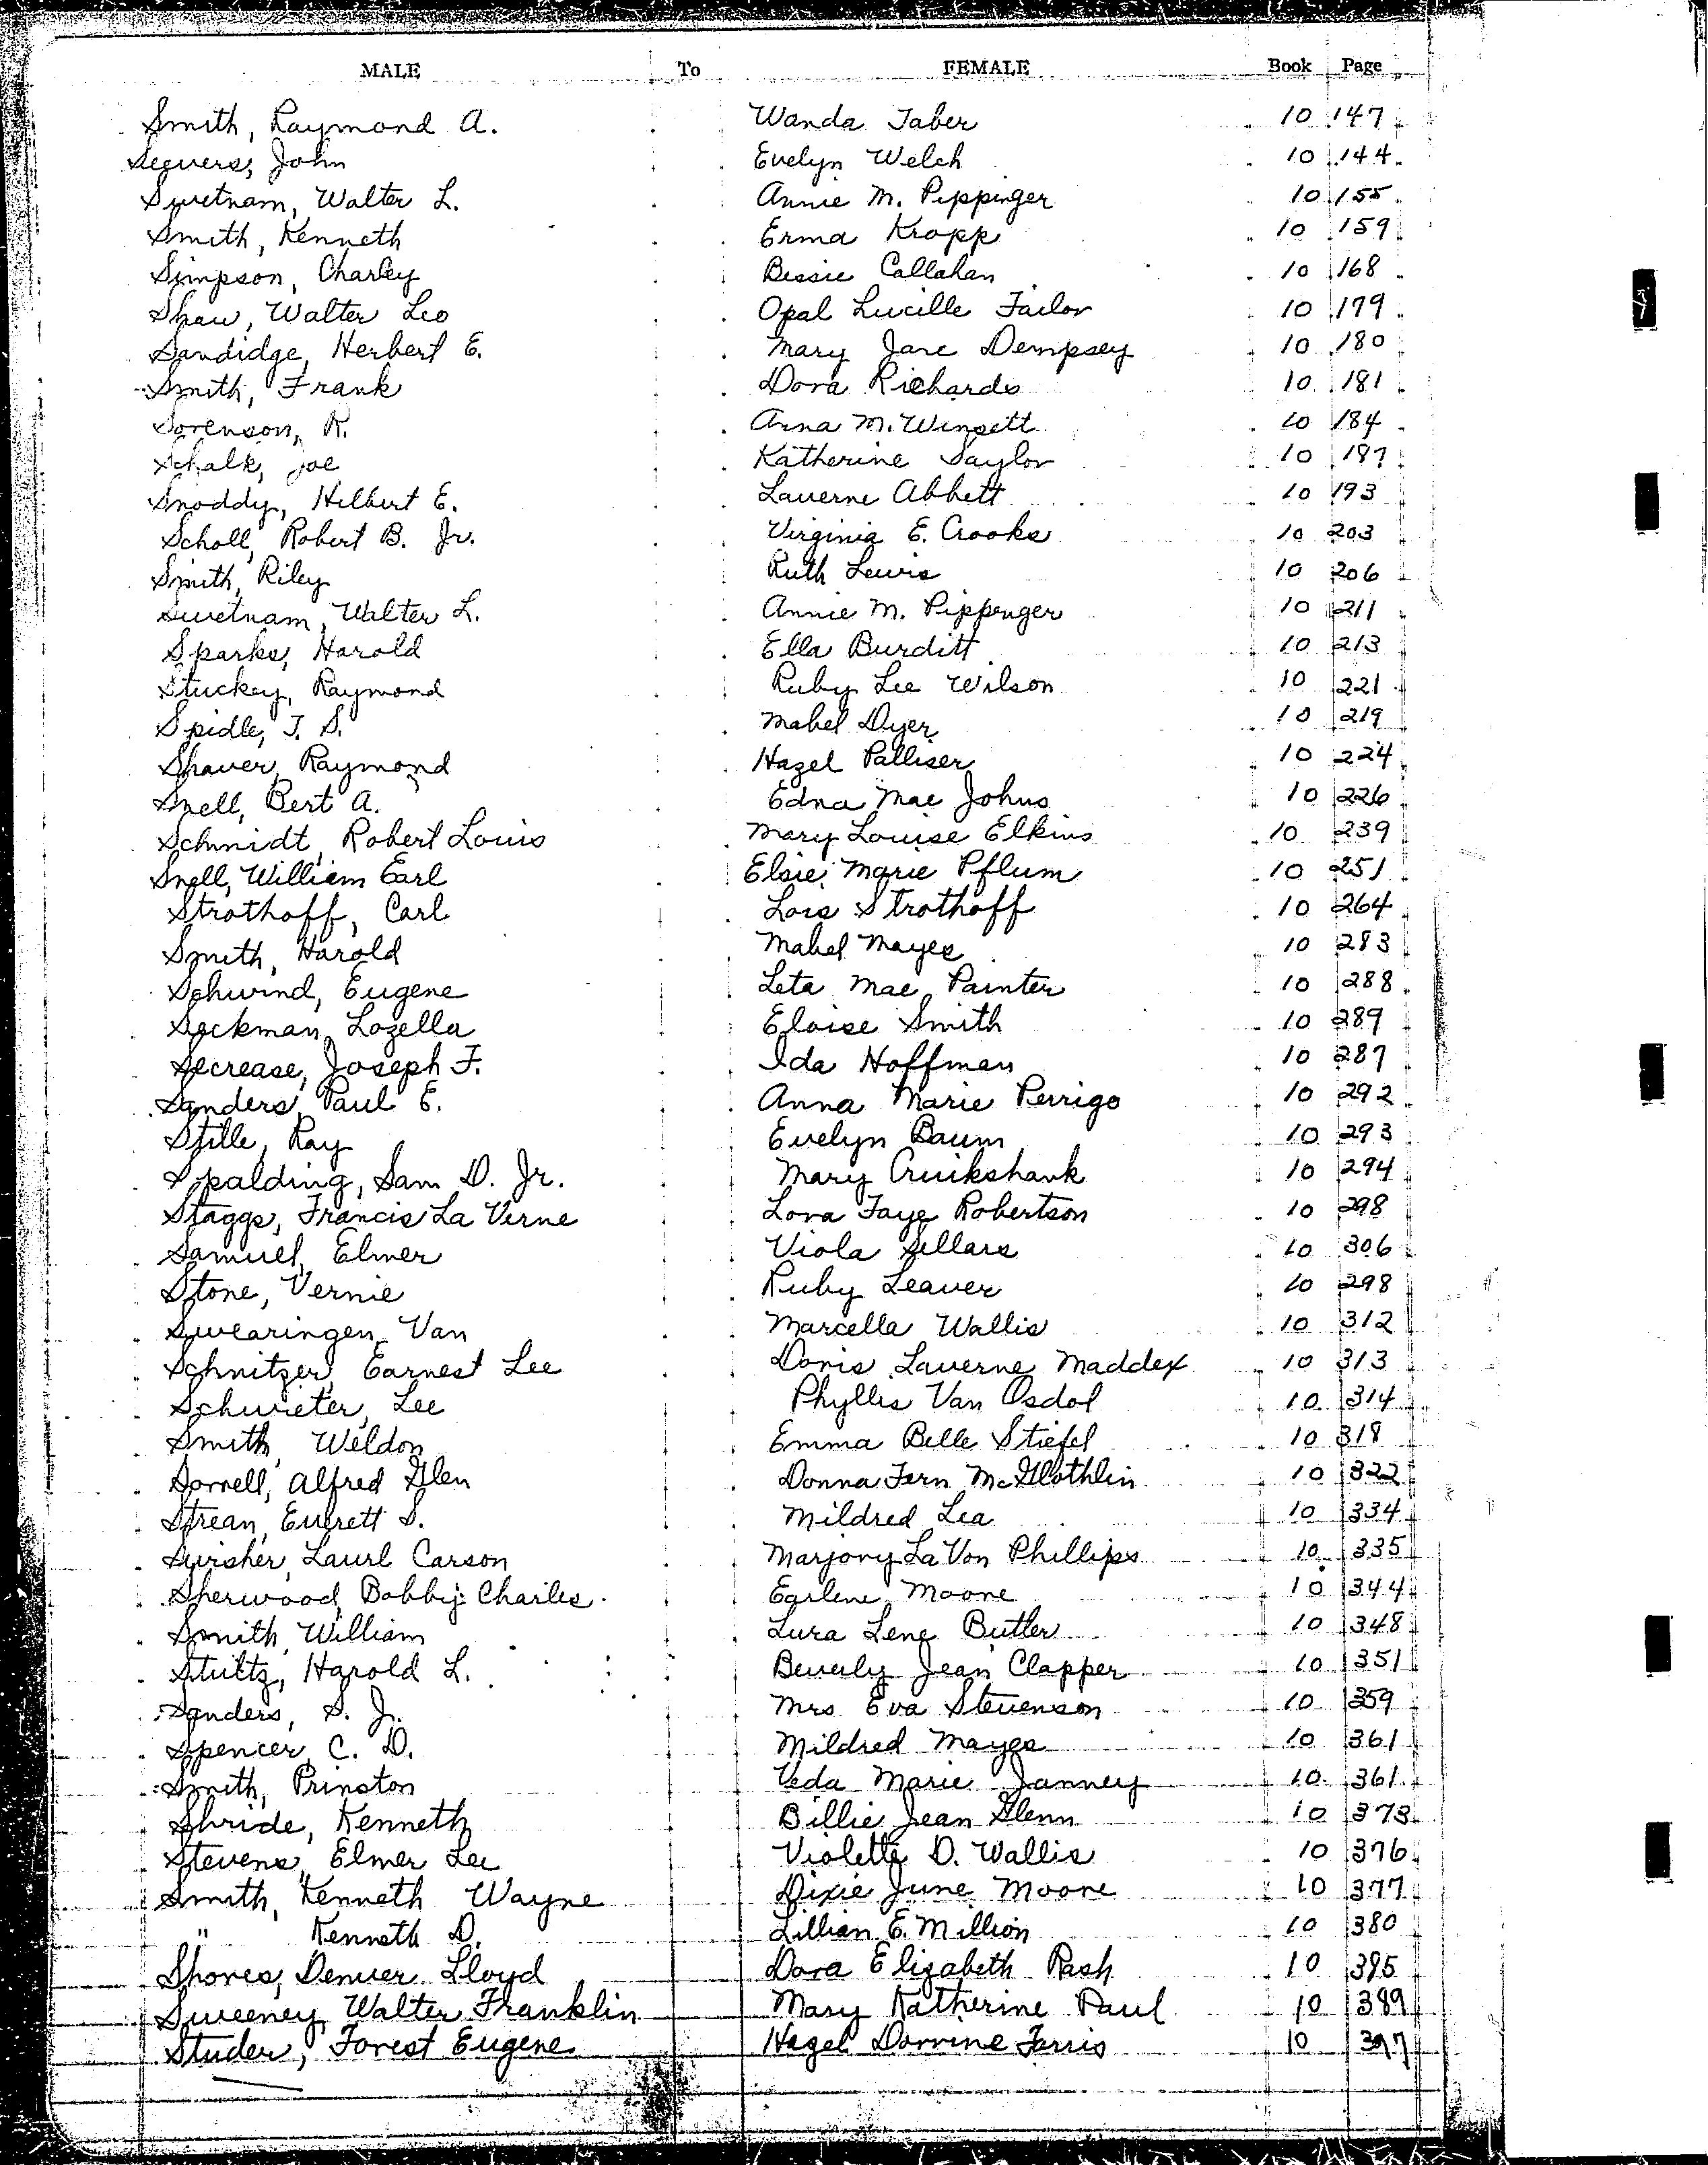 MALE To FEMALE Book Page
Smith, Raymond A. Wanda Taber 10 147
Seevers, John Evelyn Welch 10 144
Swetnam, Walter L. Annie M. Pippinger 10 155
Smith, Kenneth Erma Kropp 10 159
Simpson, Charley Bessie Callahan 10 168
Shaw, Walter Leo Opal Lucille Failor 10 179
Sandidge, Herbert E. Mary Jane Dempsey 10 180
Smith, Frank Dora Richards 10 181
Sorenson, R. Anna M. Winsett 10 184
Schalk, Joe Katherine Saylor 10 187
Snoddy, Hilbert E. Laverne Abbett 10 193
Scholl, Robert B. Jr. Virginia E. Crooks 10 203
Smith, Riley Ruth Lewis 10 206
Swetnam, Walter L. Annie M. Pippenger 10 211
Sparks, Harold Ella Burditt 10 213
Stuckey, Raymond Ruby Lee Wilson 10 221
Spidle, T. S. Mabel Dyer 10 219
Shaver, Raymond Hazel Palliser 10 224
Snell, Bert A. Edna Mae Johns 10 226
Schmidt, Robert Louis Mary Louise Elkins 10 239
Snell, William Earl Elsie Marie Pflum 10 251
Strothoff, Carl Lois Strothoff 10 264
Smith, Harold Mabel Mayes 10 283
Schwind, Eugene Leta Mae Painter 10 288
Sockman, Lozella Eloise Smith 10 289
Secrease, Joseph F. Ida Hoffman 10 287
Sanders, Paul E. Anna Marie Perrigo 10 292
Stille, Ray Evelyn Baum 10 293
Spalding, Sam D. Jr. Mary Cruikshank 10 294
Staggs, Francis La Verne Lora Faye Robertson 10 298
Samuel, Elmer Viola Sellars 10 306
Stone, Vernie Ruby Leaver 10 298
Swearingen, Van Marcella Wallis 10 312
Schnitzer, Earnest Lee Doris Laverne Maddex 10 313
Schwieter, Lee Phyllis Van Osdol 10 314
Smith, Weldon Emma Belle Stiefel 10 318
Sorrell, Alfred Glen Donna Fern McGlothlin 10 322
Strean, Everett S. Mildred Lea 10 334
Swisher, Laurl Carson Marjory LaVon Phillips 10 335
Sherwood, Bobby Charles Earlene Moore 10 344
Smith, William Lura Lene Butler 10 348
Stultz, Harold L. Beverly Jean Clapper 10 351
Sanders, S. Jr. Mrs Eva Stevenson 10 359
Spencer, C. D. Mildred Mayes 10 361
Smith, Prinston Veda Marie Janney 10 361
Shride, Kenneth Billie Jean Glenn 10 373
Stevens, Elmer Lee Violette D. Wallis 10 376
Smith, Kenneth Wayne Dixie June Moore 10 377
" Kenneth D. Lillian E. Million 10 380
Shores, Denver Lloyd Dora Elizabeth Pash 10 395
Sweeney, Walter Franklin Mary Katherine Paul 10 389
Studer, Forest Eugene Hazel Dorrine Ferris 10 397